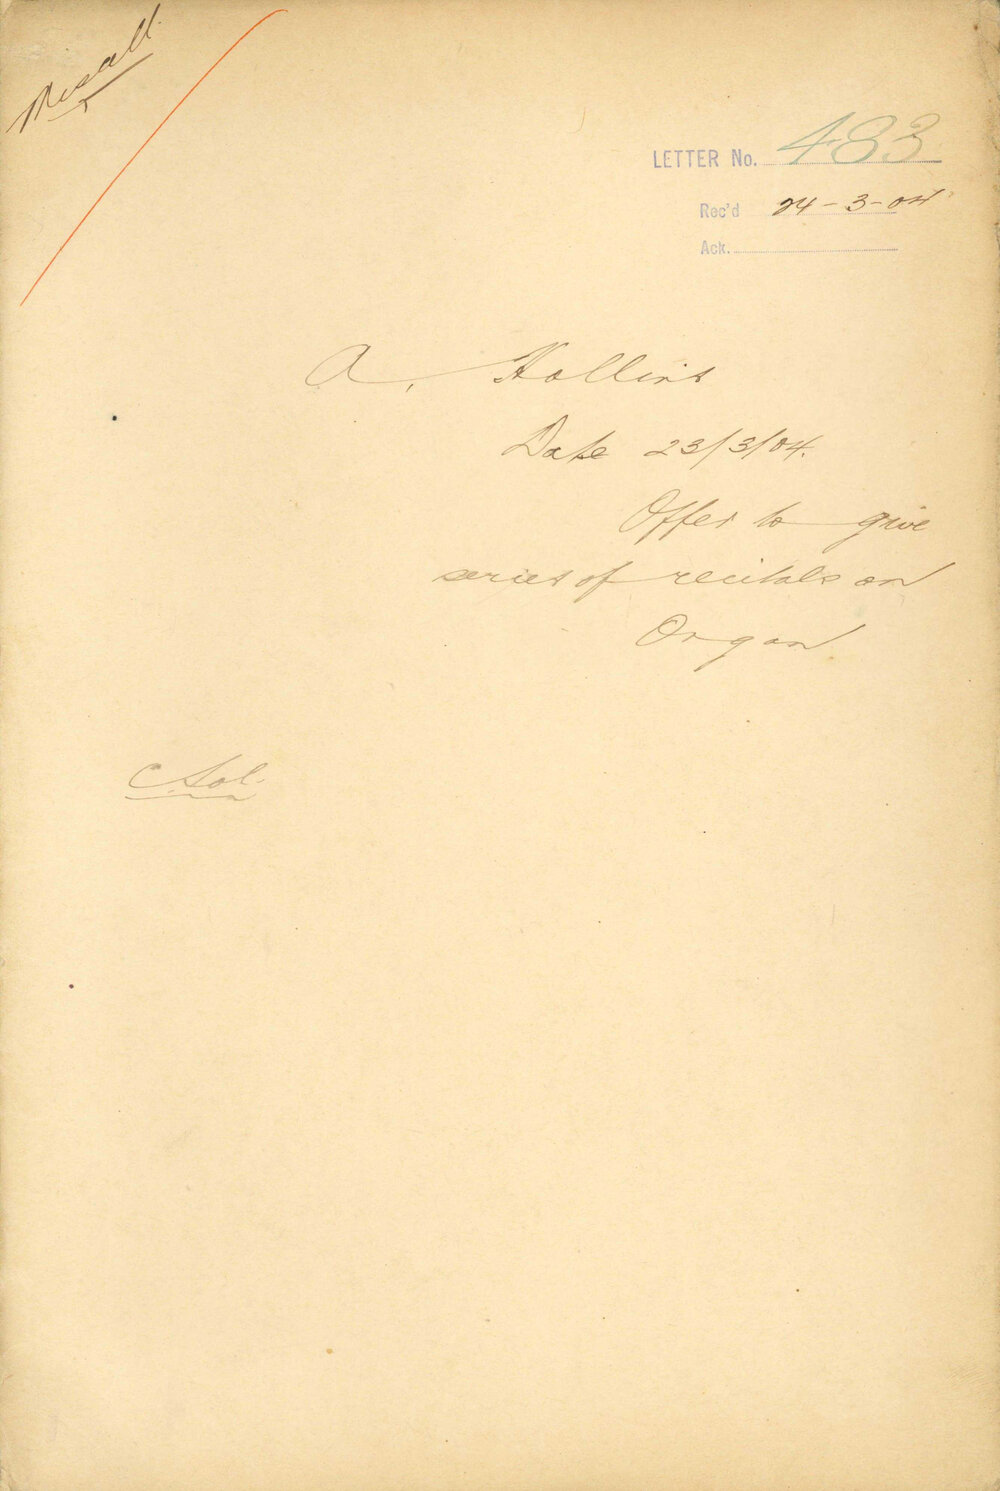 Miscell.
LETTER No. 483
Rec'd 24-3-04
Ack.
A. Hollins
Date 23/3/04.
Offer to give
series of recitals on
Organ